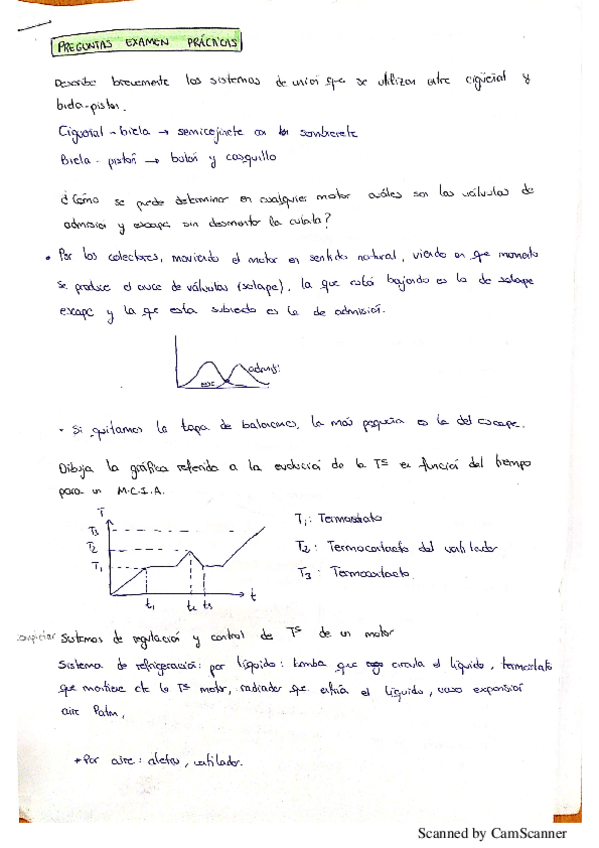 PREGUNTAS EXAMEN PRÁCTICAS
Describe brevemente los sistemas de unión que se utilizan entre cigüeñal y
biela-pistón.
Cigüeñal - biela → semicojinete con sombrerete
Biela - pistón → bulón y casquillo
¿Cómo se puede determinar en cualquier motor cuáles son las válvulas de
admisión y escape sin desmontar la culata?
• Por los colectores, moviendo el motor en sentido natural, viendo en que momento
se produce el cruce de válvulas (solape), la que está bajando es la de solape
escape y la que esta subiendo es la de admisión.
admis:
esc
- Si quitamos la tapa de balancines, la más pequeña es la del escape.
Dibuja la gráfica referida a la evolución de la Tª en función del tiempo
para un M.C.I.A.
T
T3
T2
T1
t1 t2 t3 t
T1: Termostato
T2: Termocontacto del ventilador
T3: Termocontacto
Sistemas de regulación y control de Tª de un motor
Sistema de refrigeración: por líquido: bomba que circula el líquido, termostato
que mantiene cte la Tª motor, radiador que enfría el líquido, vaso expansión
aire
* Por aire: aletas, ventilador.
Scanned by CamScanner